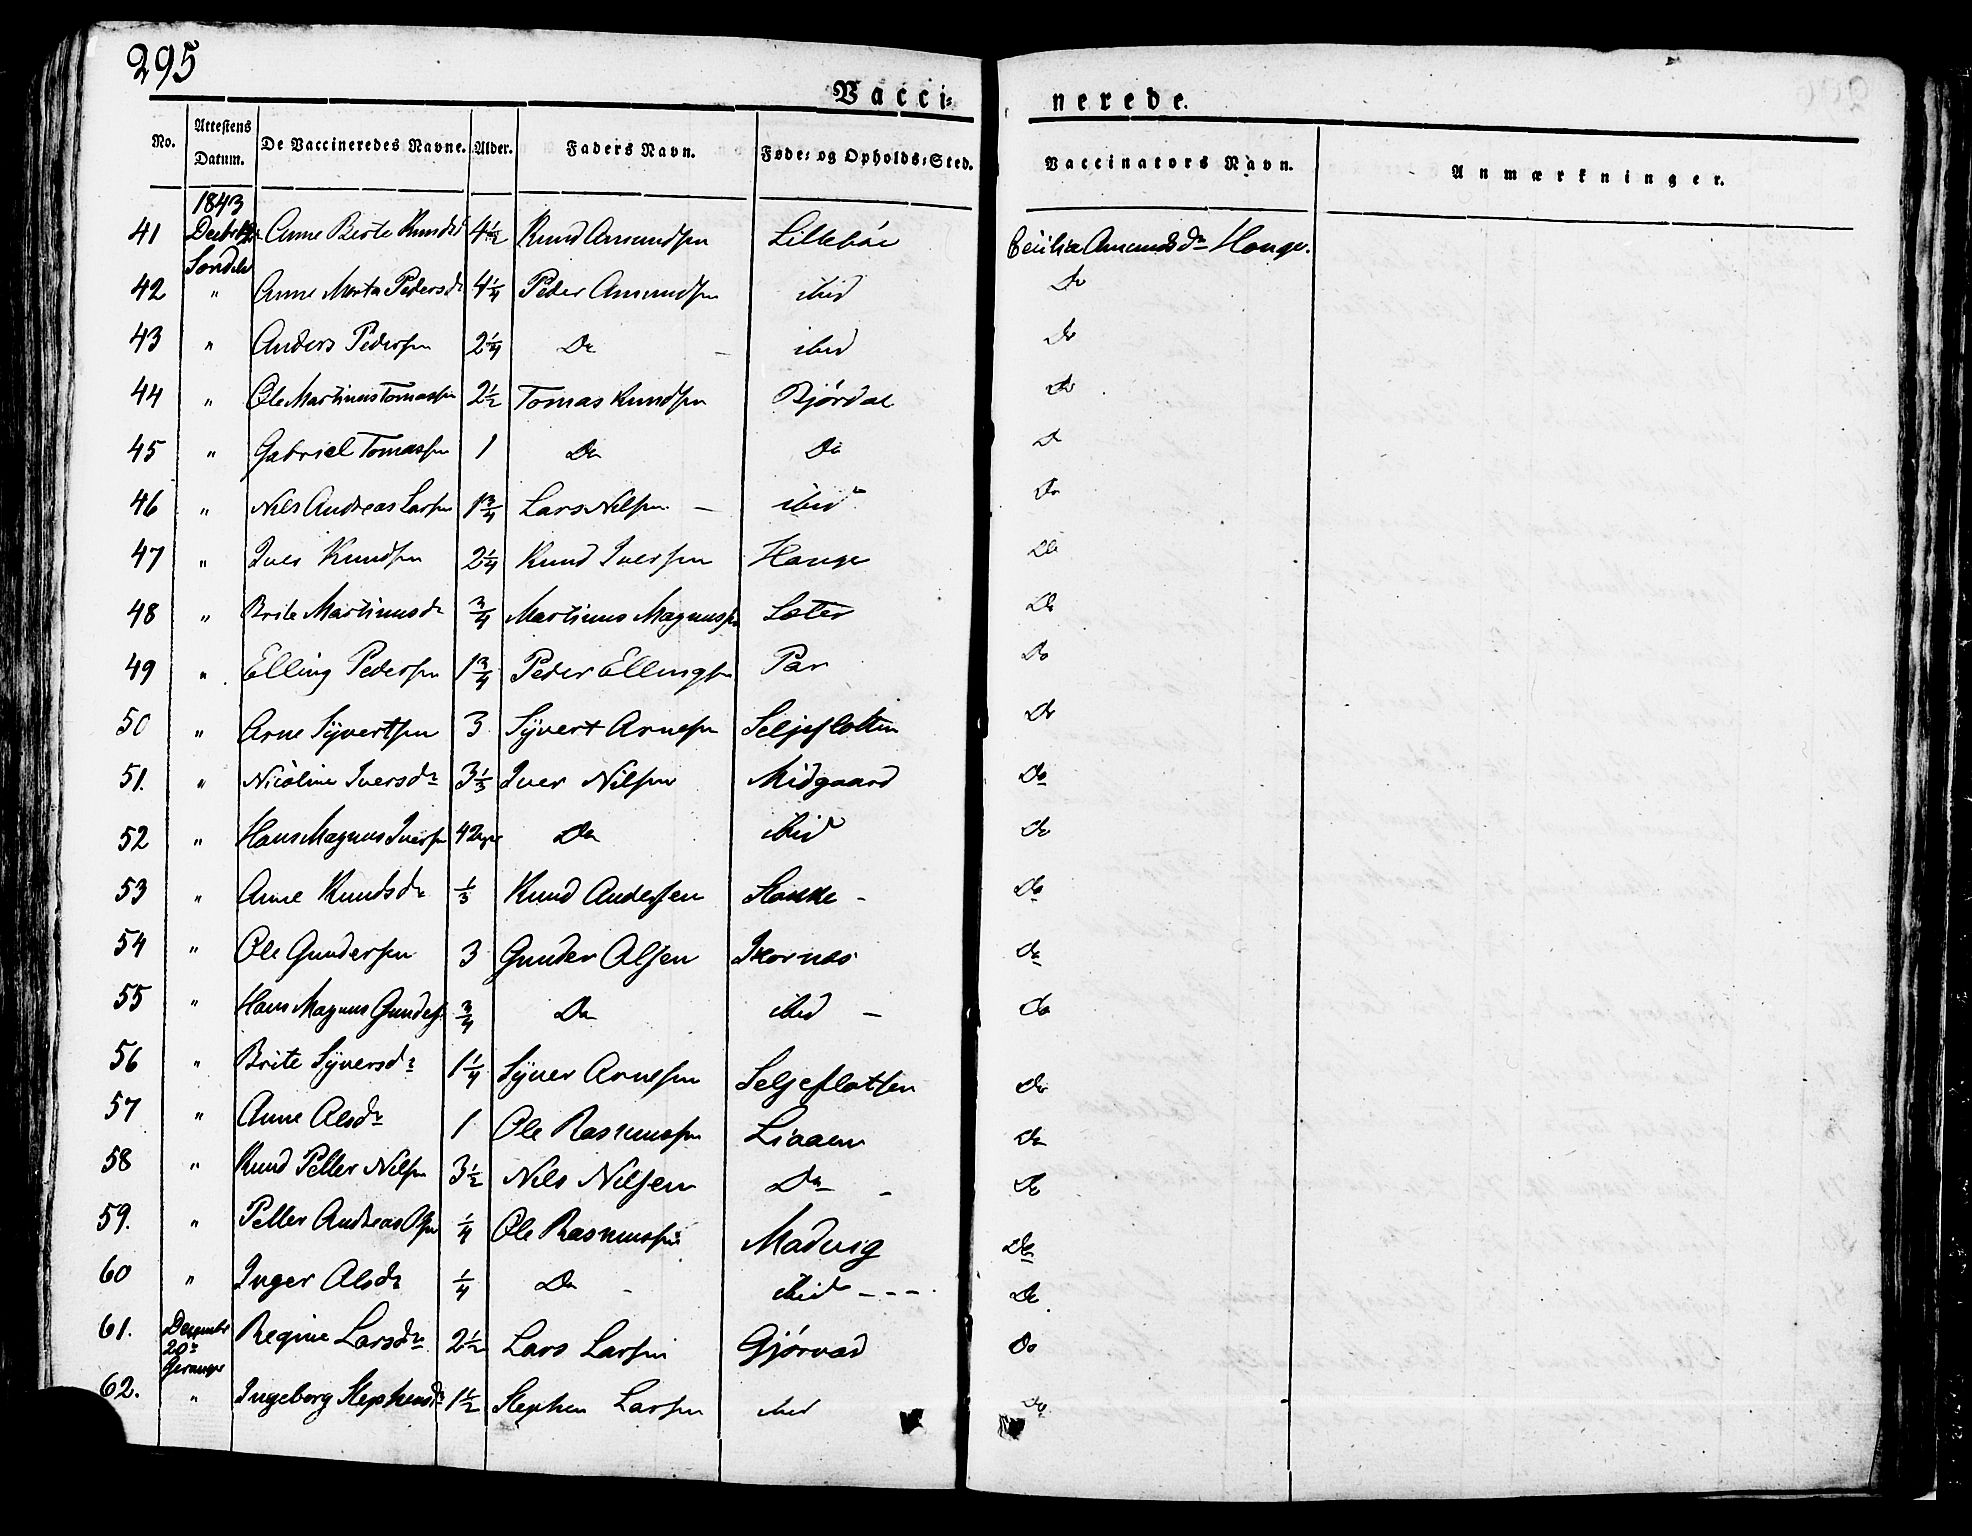 295
Vacci-nerede.
No. Attestens Datum. De Vaccineredes Navne. Alder. Faders Navn. Føde- og Opholds-Sted. Vaccinators Navn. Anmærkninger.
1843
41 Anne Berte Knudsd 4½ Knud Amundsen Lillebøe Cecilia Amundsdr Hauge.
42 " Anne Marta Pedersd 4¼ Peder Amundsen ibid Do
43 " Anders Pedersen 2¼ Do – ibid Do
44 " Ole Martinus Tomassen 2½ Tomas Knudsen Bjørdal Do
45 " Gabriel Tomassen 1 Do Do Do
46 " Nils Andreas Larsen 1¾ Lars Nilsen – ibid Do
47 " Iver Knudsen 2¼ Knud Iversen Hauge Do
48 " Brite Martinusdr ¾ Martinus Magnussen Sæter Do
49 " Elling Pedersen 1¾ Peder Ellingsen Par Do
50 " Arne Syvertsen 3 Syvert Arnesen Seljeflotten Do
51. " Nicoline Iversdr 3⅓ Iver Nilsen Midgaard Do
52 " Hans Magnus Iversen Do ibid Do
53 " Anne Knudsdr ⅓ Knud Andersen – Do
54 " Ole Gundersen 3 Gunder Olsen Ikornæs Do
55 " Hans Magnus Gunders ¾ Do ibid – Do
56 " Brite Syversdr 1¼ Syver Arnesen Seljeflotten Do
57 " Anne Olsdr 1 Ole Rasmussen Liaaen Do
58 " Knud Petter Nilsen 3½ Nils Nilsen Do – Do
59. " Petter Andreas Olsen ¼ Ole Rasmussen Madvig Do
60 " Inger Olsdr ¼ Do – ibid – – – Do
61. December 20de Regine Larsdr 2½ Lars Larsen Gjørvad Do
Geranger
62. " Ingeborg Stephensdr 1½ Stephen Larsen ibid Do